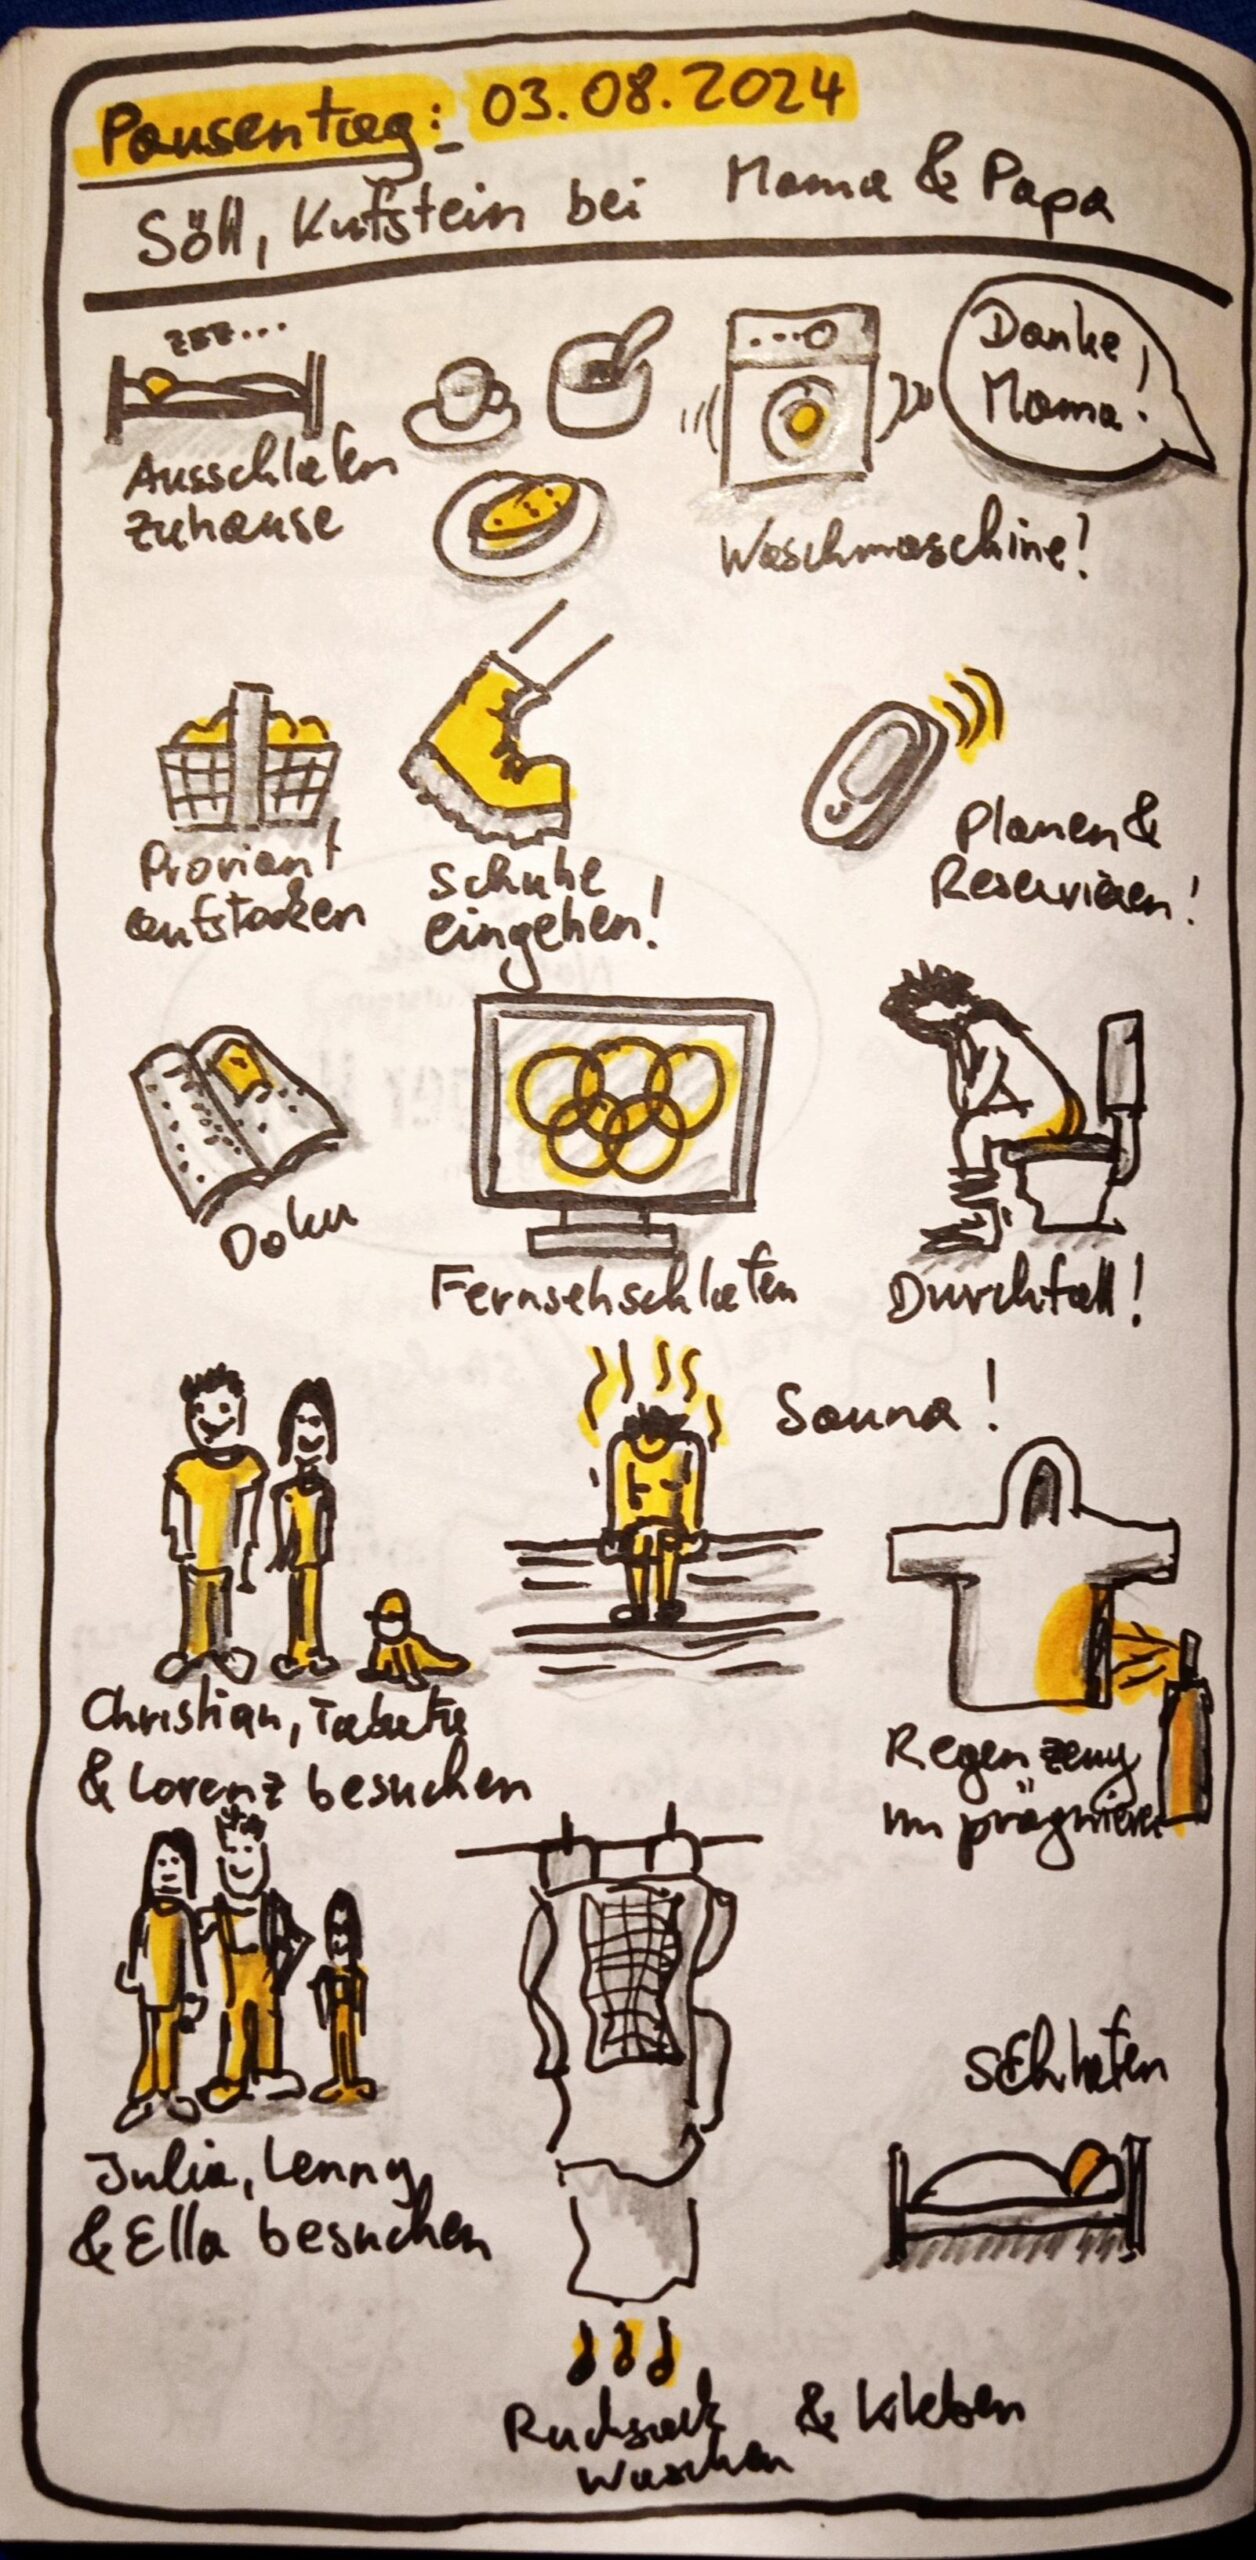 Pausentag: 03.08.2024
Söll, Kufstein bei Mama & Papa
zzz...
Ausschlafen
zuhause
Danke
Mama!
Waschmaschine!
Proviant
aufstocken
Schuhe
eingehen!
Planen &
Reservieren!
Doku
Fernsehschlafen
Durchfall!
Sauna!
Christian,
& Lorenz besuchen
Regenzeug
imprägnieren
Julia, Lenny,
& Ella besuchen
SChlafen
Rucksack
waschen
& kleben